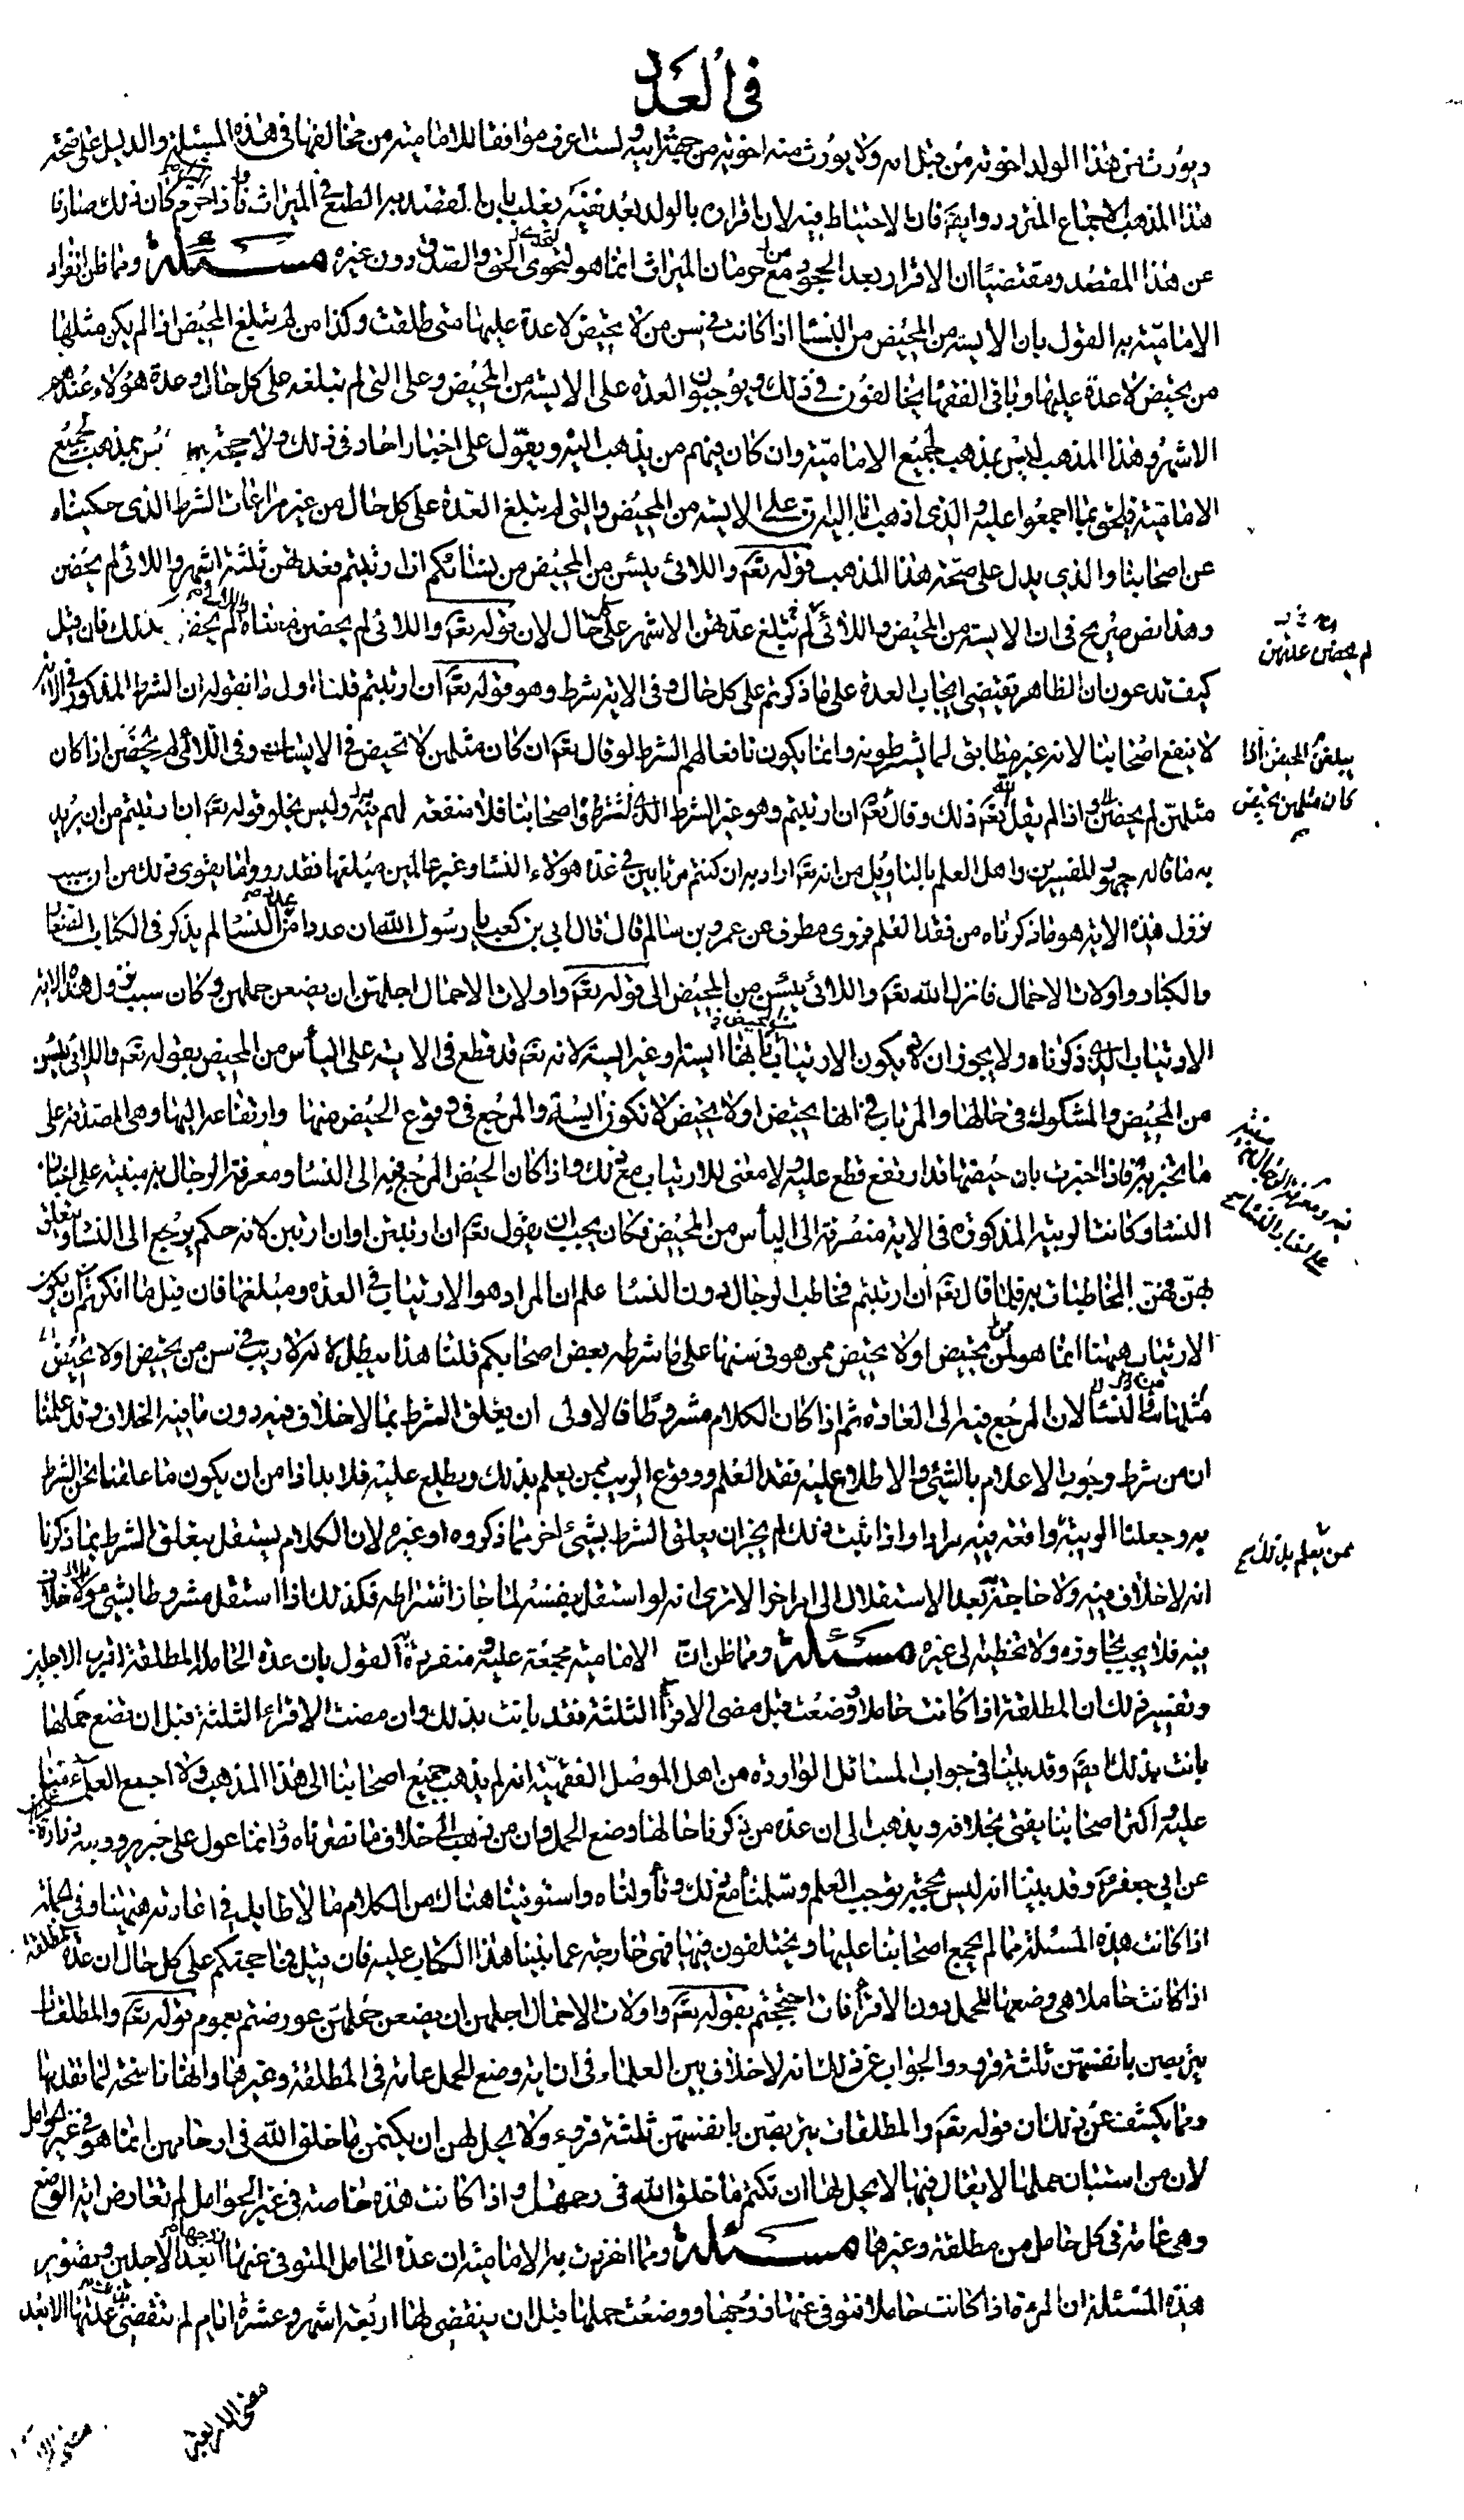 في العدد
ويورث من هذا الولد اخوته من قبل امه ولا يورث منه اخوته من جهة ابيه ولست اعرف موافقا للامامية من مخالفيها في هذه المسئلة والدليل على صحة
هذا المذهب الاجماع المتردد وايضم فان الاحتياط فيه لان اقراره بالولد بعد نفيه يغلب بان لقصد به الطمع في الميراث فاذا حرم كان ذلك صارفا
عن هذا المقصد ومقتضيا ان الاقرار بعد الجحود مع حرمان الميراث انما هو لتحرى الحق والصدق دون غيره مسئلة ومما ظن انفراد
الامامية به القول بان الايسة من المحيض من النساء اذا كانت في سن من لا يحيض لا عدة عليها متى طلقت وكذا من لم يبلغ المحيض اذا لم يكن مثلها
من يحيض لا عدة عليها وباقى الفقهاء يخالفون في ذلك ويوجبون العدة على الايسة من المحيض وعلى التى لم تبلغه على كل حال وعدة هؤلاء عندهم
الاشهر وهذا المذهب ليس بمذهب لجميع الامامية وان كان فيهم من يذهب اليه ويعول على اخبار احاد في ذلك ولا حجة بها ليس بمذهب لجميع
الامامية فيلحق بما اجمعوا عليه والذى اذهب انا اليه ان على الايسة من المحيض والتى لم تبلغ العدة على كل حال من غير مراعات الشرط الذى حكيناه
عن اصحابنا والذى يدل على صحة هذا المذهب قوله تعم واللائى يئسن من المحيض من نسائكم ان ارتبتم فعدتهن ثلثة اشهر واللائى لم يحضن
وهذا نص صريح في ان الايسة من المحيض واللائى لم تبلغ عدتهن الاشهر على كل حال لان قوله تعم واللائى لم يحضن معناه واللائى لم يحضن كذلك فان قيل
كيف تدعون ان الظاهر يقتضى ايجاب العدة على ما ذكرتم على كل حال وفى الاية شرط وهو قوله تعم ان ارتبتم قلنا اول ما نقوله ان الشرط المذكور في الاية
لا ينفع اصحابنا لانه غير مطابق لما يشرطونه وانما يكون نافعا لهم الشرط لو قال تعم ان كان مثلهن لا تحيض في الايسات وفى اللائى لم يحضن اذا كان
مثلهن لم يحضن واذا لم يقل الله تعم ذلك وقال تعم ان ارتبتم وهو غير الشرط الذى يشرطه اصحابنا فلا منفعة لهم فيه وليس يخلو قوله تعم ان ارتبتم من ان يريد
به ما قاله جمهور المفسرين واهل العلم بالتاويل من انه تعم اراد به ان كنتم مرتابين في عدة هؤلاء النساء وغير عالمين مبلغها فقد رووا ما يقوى ذلك من ان سبب
نزول هذه الاية هو ما ذكرناه من فقد العلم فروى مطرف عن عمرو بن سالم قال قال ابى بن كعب يا رسول الله ان عددا من عدد النساء لم يذكر في الكتاب الصغار
والكبار واولات الاحمال فانزل الله تعم واللائى يئسن من المحيض الى قوله تعم واولات الاحمال اجلهن ان يضعن حملهن وكان سبب نزول هذه الاية
الارتياب الذى ذكرناه ولا يجوز ان يكون الارتياب بانها ايسة او غير ايسة لانه تعم قد قطع في الايسة على الياس من المحيض بقوله تعم واللائى يئسن
من المحيض والمشكوك في حالها والمرتاب في انها يحيض اولا يحيض لا تكون ايسة والمرجع في وقوع الحيض منها وارتفاعه اليها وهى المصدقة على
ما تخبر به فاذا اخبرت بان حيضها قد ارتفع قطع عليه ولا معنى للارتياب مع ذلك واذا كان الحيض المرجع فيه الى النساء ومعرفة الرجال به مبنية على اخبار
النساء وكانت الريبة المذكورة في الاية منصرفة الى الياس من المحيض فكان يجب ان يقول تعم ان ارتبتن او ان ارتبن لانه حكم يرجع الى النساء ويتعلق
بهن فهن المخاطبات به فلما قال تعم ان ارتبتم فخاطب الرجال دون النساء علم ان المراد هو الارتياب في العدة ومبلغها فان قيل ما انكرتم ان يكون
الارتياب ههنا انما هو بمن تحيض اولا يحيض ممن هو في سنها على ما شرطه بعض اصحابكم قلنا هذا يبطل لانه لا ريب في سن من يحيض اولا يحيض
مثلها من النساء لان المرجع فيه الى العادة ثم اذا كان الكلام مشروطا فالاولى ان يعلق الشرط بما لا خلاف فيه دون ما فيه الخلاف وقد علمنا
ان من شرط وجوب الاعلام بالشئ والاطلاع عليه فقد العلم ووقوع الريب ممن يعلم بذلك ويطلع عليه فلا بد اذا من ان يكون ما علقنا نحن الشرط
به وجعلنا الريبة واقعة فيه مرادا واذا ثبت ذلك لم يجز ان يعلق الشرط بشئ اخر مما ذكروه او غيره لان الكلام يستقل بتعلق الشرط بما ذكرنا
انه لا خلاف فيه ولا حاجة بعد الاستقلال الى امر اخر الا ترى انه لو استقل بنفسه لما جاز اشتراطه فكذلك اذا استقل مشروطا بشئ ولا خلاف
فيه فلا يجب تجاوزه ولا تخطيه الى غيره مسئلة ومما ظن ان الامامية مجمعة عليه ومنفردة به القول بان عدة الحامل المطلقة اقرب الاجلين
وتفسير ذلك ان المطلقة اذا كانت حاملا ووضعت قبل مضى الاقراء الثلثة فقد بانت بذلك وان مضت الاقراء الثلثة قبل ان تضع حملها
بانت بذلك ايضم وقد بينا في جواب المسائل الواردة من اهل الموصل الفقهية انه لم يذهب جميع اصحابنا الى هذا المذهب ولا اجمع العلماء منا
عليه واكثر اصحابنا يفتى بخلافه ويذهب الى ان عدة من ذكرنا حالها وضع الحمل وان من ذهب الى خلاف ما نصرناه وانما عول على خبر يرويه زرارة
عن ابى جعفر م وقد بينا انه ليس بحجة توجب العلم وسلمناه مع ذلك وتأولناه واستوفينا هناك من الكلام ما لا طايل في اعادته ههنا وفى الجملة
اذا كانت هذه المسئلة مما لم يجمع اصحابنا عليها ويختلفون فيها فهى خارجة عما بنينا هذا الكتاب عليه فان قيل فما حجتكم على كل حال ان عدة المطلقة
اذا كانت حاملا هى وضعها للحمل دون الاقراء فان احتججتم بقوله تعم واولات الاحمال اجلهن ان يضعن حملهن عورضتم بعموم قوله تعم والمطلقات
يتربصن بانفسهن ثلثة قروء والجواب عن ذلك انه لا خلاف بين العلماء في ان اية وضع الحمل عامة في المطلقة وغيرها وانها ناسخة لما تقدمها
ومما يكشف عن ذلك ان قوله تعم والمطلقات يتربصن بانفسهن ثلثة قروء ولا يحل لهن ان يكتمن ما خلق الله في ارحامهن انما هو في غير الحوامل
لان من استبان حملها لا يقال فيها لا يحل لها ان تكتم ما خلق الله في رحمها واذا كانت هذه خاصة في غير الحوامل لم تعارض اية الوضع
وهى عامة في كل حامل من مطلقة وغيرها مسئلة ومما انفردت به الامامية ان عدة الحامل المتوفى عنها زوجها ابعد الاجلين وتصوير
هذه المسئلة ان المرءة اذا كانت حاملا فتوفى عنها زوجها ووضعت حملها قبل ان ينقضى لها اربعة اشهر وعشرة ايام لم تنقض عدتها الا بعد
لم يحضن عدتهن
يبلغن المحيض اذا
كان مثلهن يحيض
فيه ومعرفة الرجال به مبنية
على اخبار النساء
ممن يعلم بذلك
مضى الاربعة